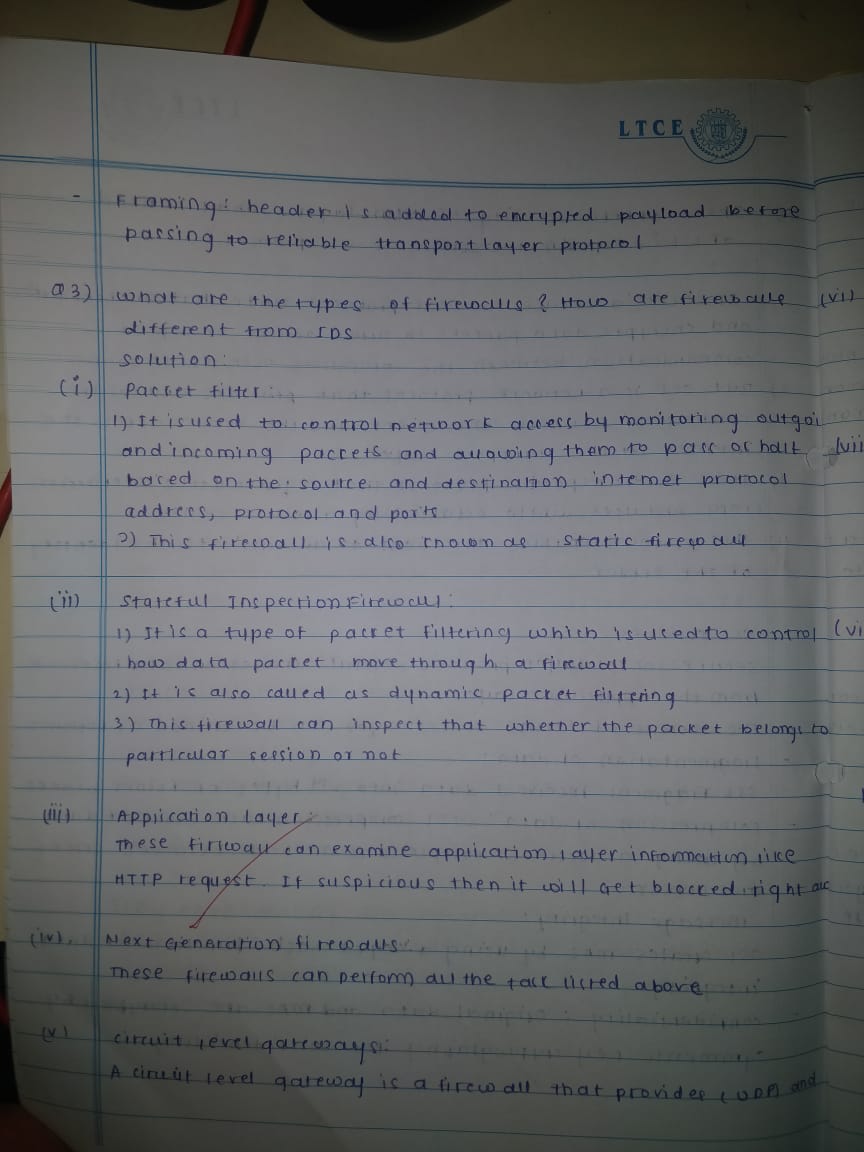 LTCE
- Framing: header is added to encrypted payload before
passing to reliable transport layer protocol
Q3) What are the types of firewalls? How are firewalls (vi)
different from IDS
solution:
(i) Packet filter:
1) It is used to control network access by monitoring outgoi
and incoming packets and allowing them to pass or halt (vii
based on the source and destination internet protocol
address, protocol and ports
2) This firewall is also known as static firewall
(ii) Stateful Inspection Firewall:
1) It is a type of packet filtering which is used to control (vi
how data packet move through a firewall
2) It is also called as dynamic packet filtering
3) This firewall can inspect that whether the packet belongs to
particular session or not
(iii) Application layer:
These firewall can examine application layer information like
HTTP request. If suspicious then it will get blocked right
(iv). Next Generation firewalls:
These firewalls can perform all the task listed above
(v) circuit level gateways:
A circuit level gateway is a firewall that provides (UDP) and